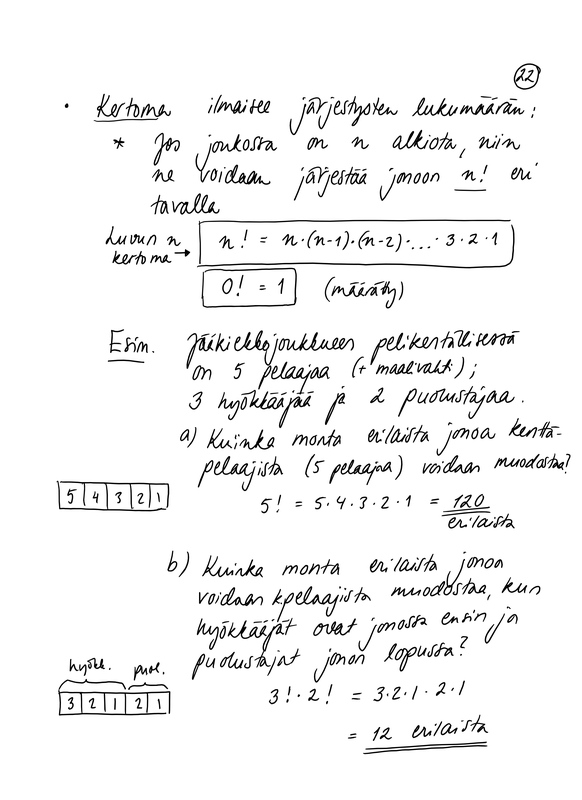 22
• Kertoma ilmaisee järjestysten lukumäärän:
* Jos joukossa on n alkiota, niin
ne voidaan järjestää jonoon n! eri
tavalla
Luvun n
kertoma →
n! = n·(n-1)·(n-2)·...·3·2·1
0! = 1 (määrätty)
Esim. Jääkiekkojoukkueen pelikentällisessä
on 5 pelaajaa (+ maalivahti);
3 hyökkääjää ja 2 puolustajaa.
a) Kuinka monta erilaista jonoa kenttä-
pelaajista (5 pelaajaa) voidaan muodostaa?
5 4 3 2 1
5! = 5·4·3·2·1 = 120
erilaista
b) Kuinka monta erilaista jonoa
voidaan kpelaajista muodostaa, kun
hyökkääjät ovat jonossa ensin ja
puolustajat jonon lopussa?
hyökk. puol.
3 2 1 2 1
3!·2! = 3·2·1·2·1
= 12 erilaista